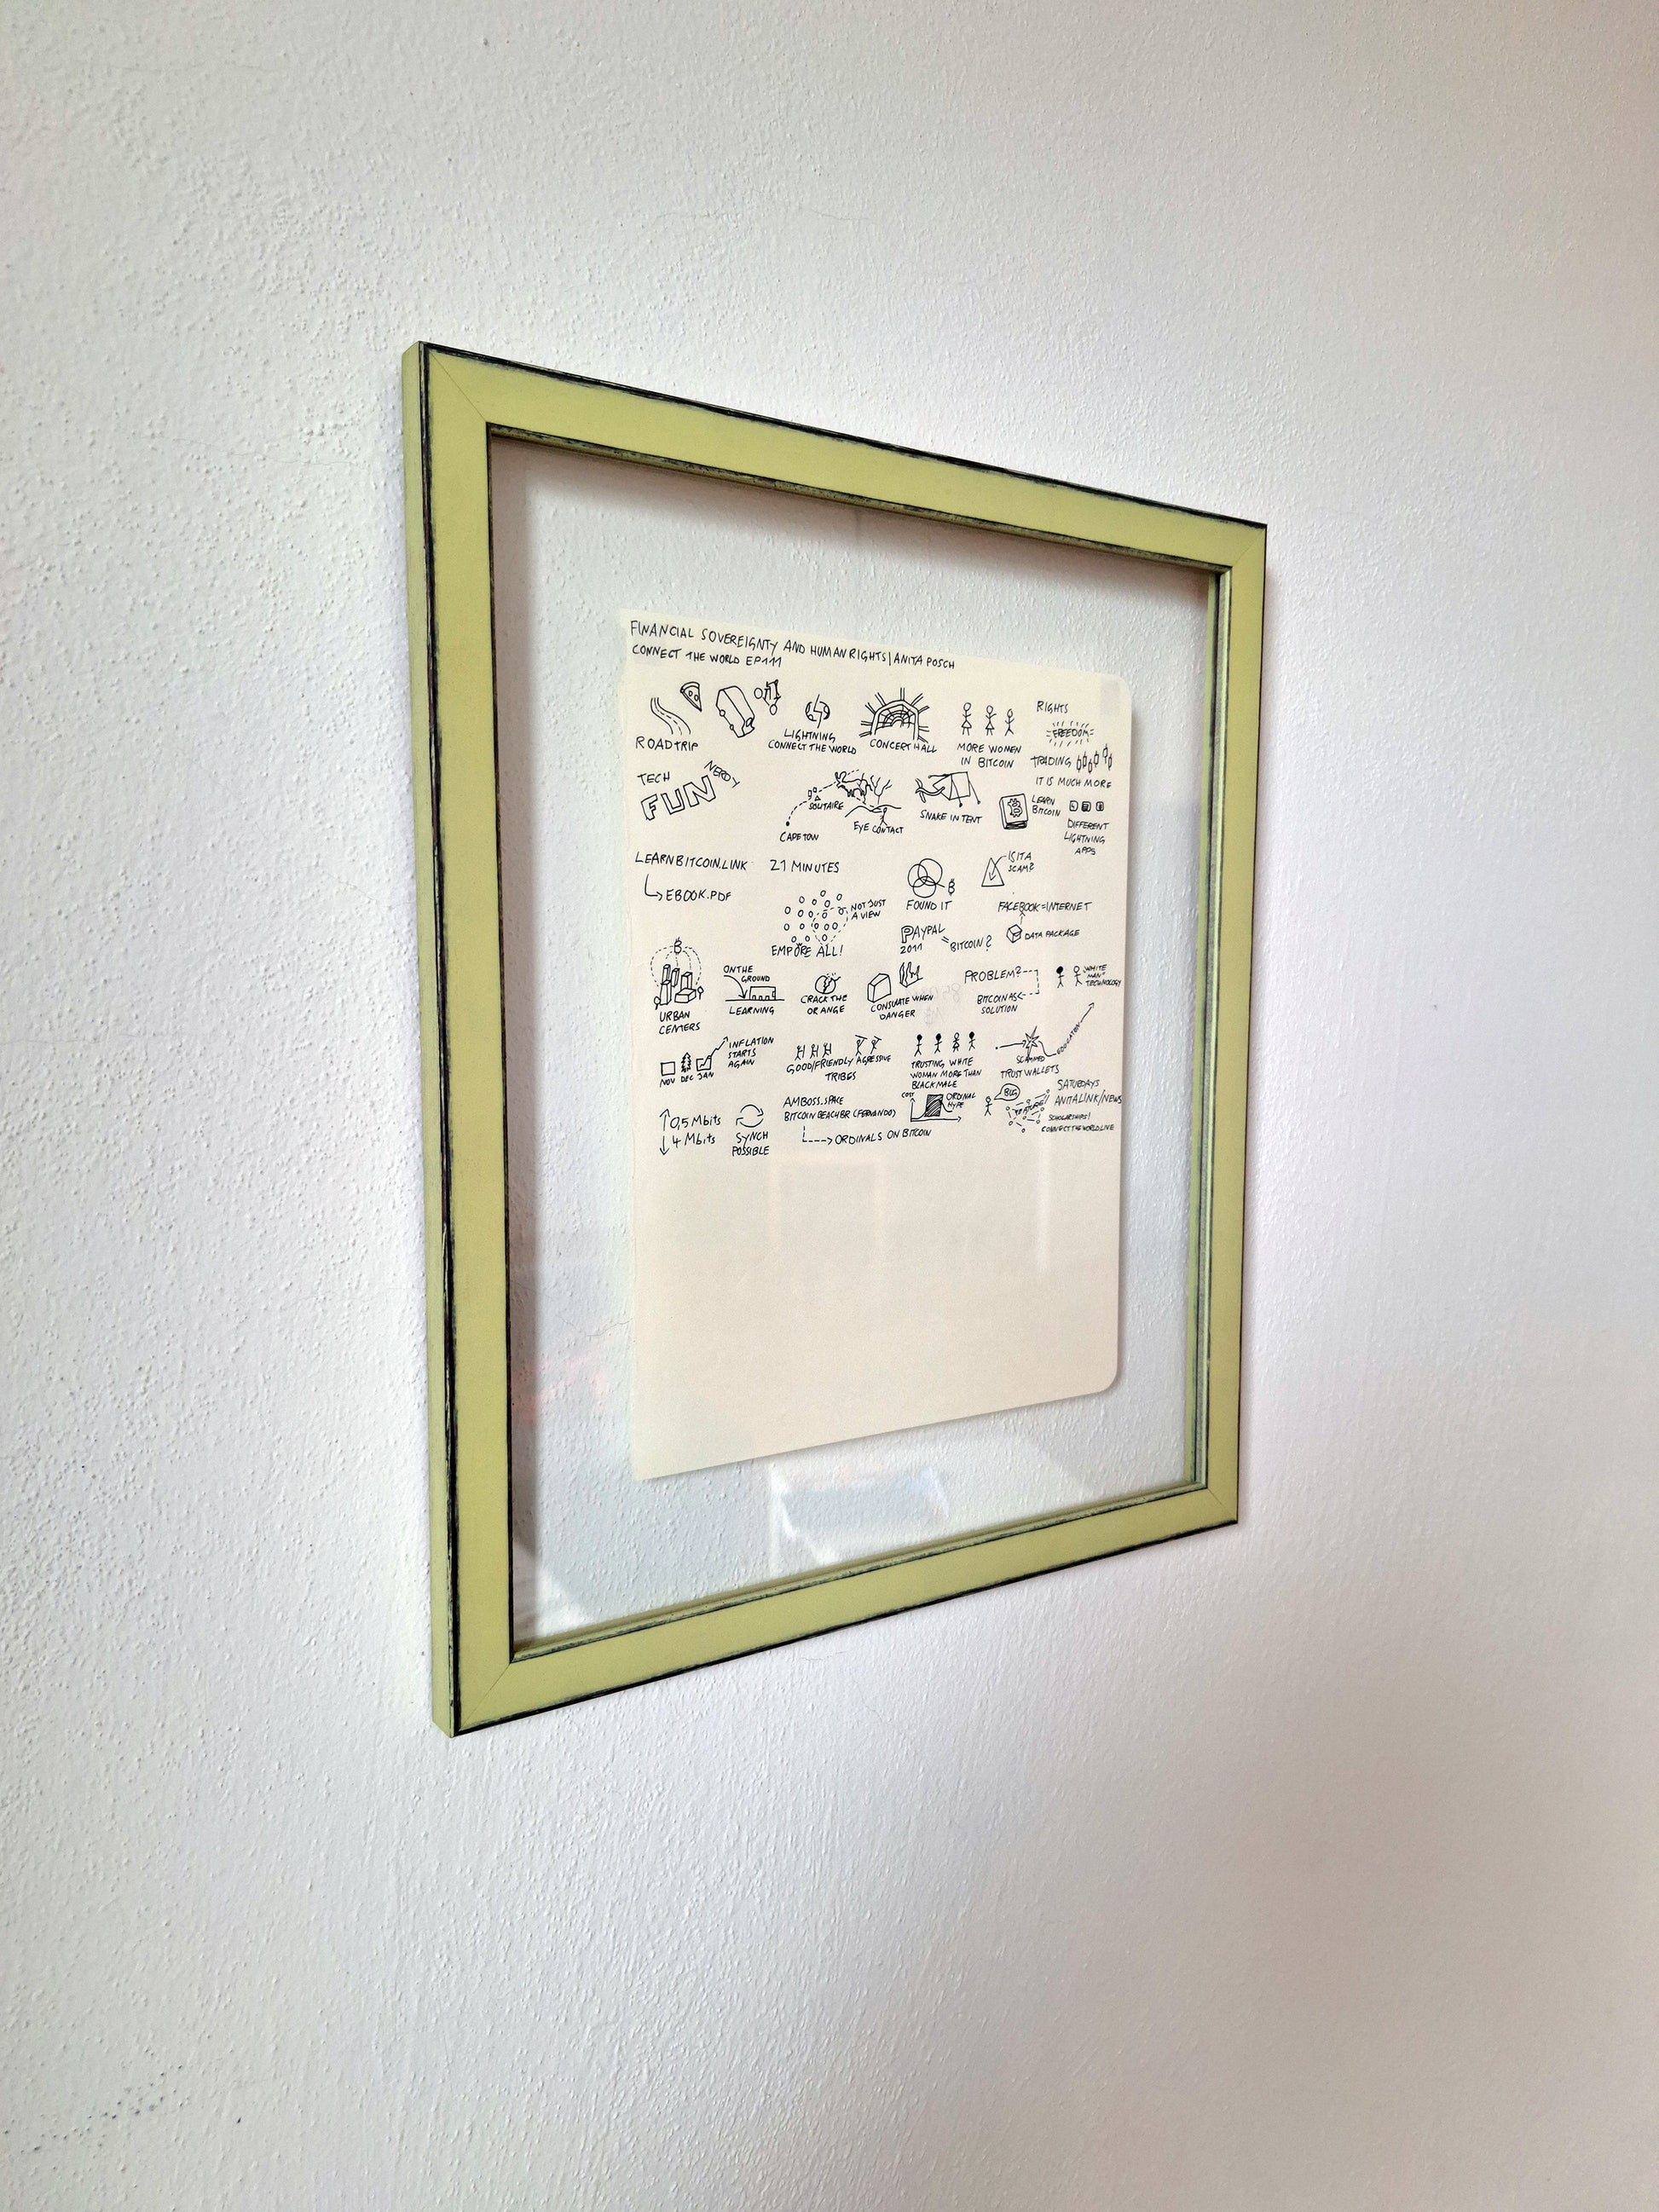 FINANCIAL SOVEREIGNTY AND HUMAN RIGHTS | ANITA POSCH
CONNECT THE WORLD EP 111
ROADTRIP
LIGHTNING
CONNECT THE WORLD
CONCERT HALL
MORE WOMEN
IN BITCOIN
RIGHTS
FREEDOM
TRADING
IT IS MUCH MORE
TECH
FUN
NERDY
CAPE TOWN
SOLITAIRE
EYE CONTACT
SNAKE IN TENT
LEARN
BITCOIN
DIFFERENT
LIGHTNING
APPS
LEARNBITCOIN.LINK
EBOOK.PDF
21 MINUTES
NOT JUST
A VIEW
EMPORE ALL!
FOUND IT
IS IT A
SCAM?
PAYPAL
2011
= BITCOIN?
FACEBOOK = INTERNET
DATA PACKAGE
URBAN
CENTERS
ON THE
GROUND
LEARNING
CRACK THE
ORANGE
CONSULATE WHEN
DANGER
PROBLEM?
BITCOIN AS
SOLUTION
WHITE
MAN
TECHNOLOGY
NOV DEC JAN
INFLATION
STARTS
AGAIN
GOOD/FRIENDLY AGRESSIVE
TRIBES
TRUSTING WHITE
WOMAN MORE THAN
BLACK MALE
SCAMMED
EDUCATION
TRUST WALLETS
↑ 0,5 Mbits
↓ 4 Mbits
SYNCH
POSSIBLE
AMBOSS.SPACE
BITCOIN BEACH BR (FERNANDO)
ORDINALS ON BITCOIN
COST
ORDINAL
HYPE
BUG
FEATURE
SATURDAYS
ANITA.LINK/NEWS
SCHOLARSHIPS!
CONNECTTHEWORLD.LIVE